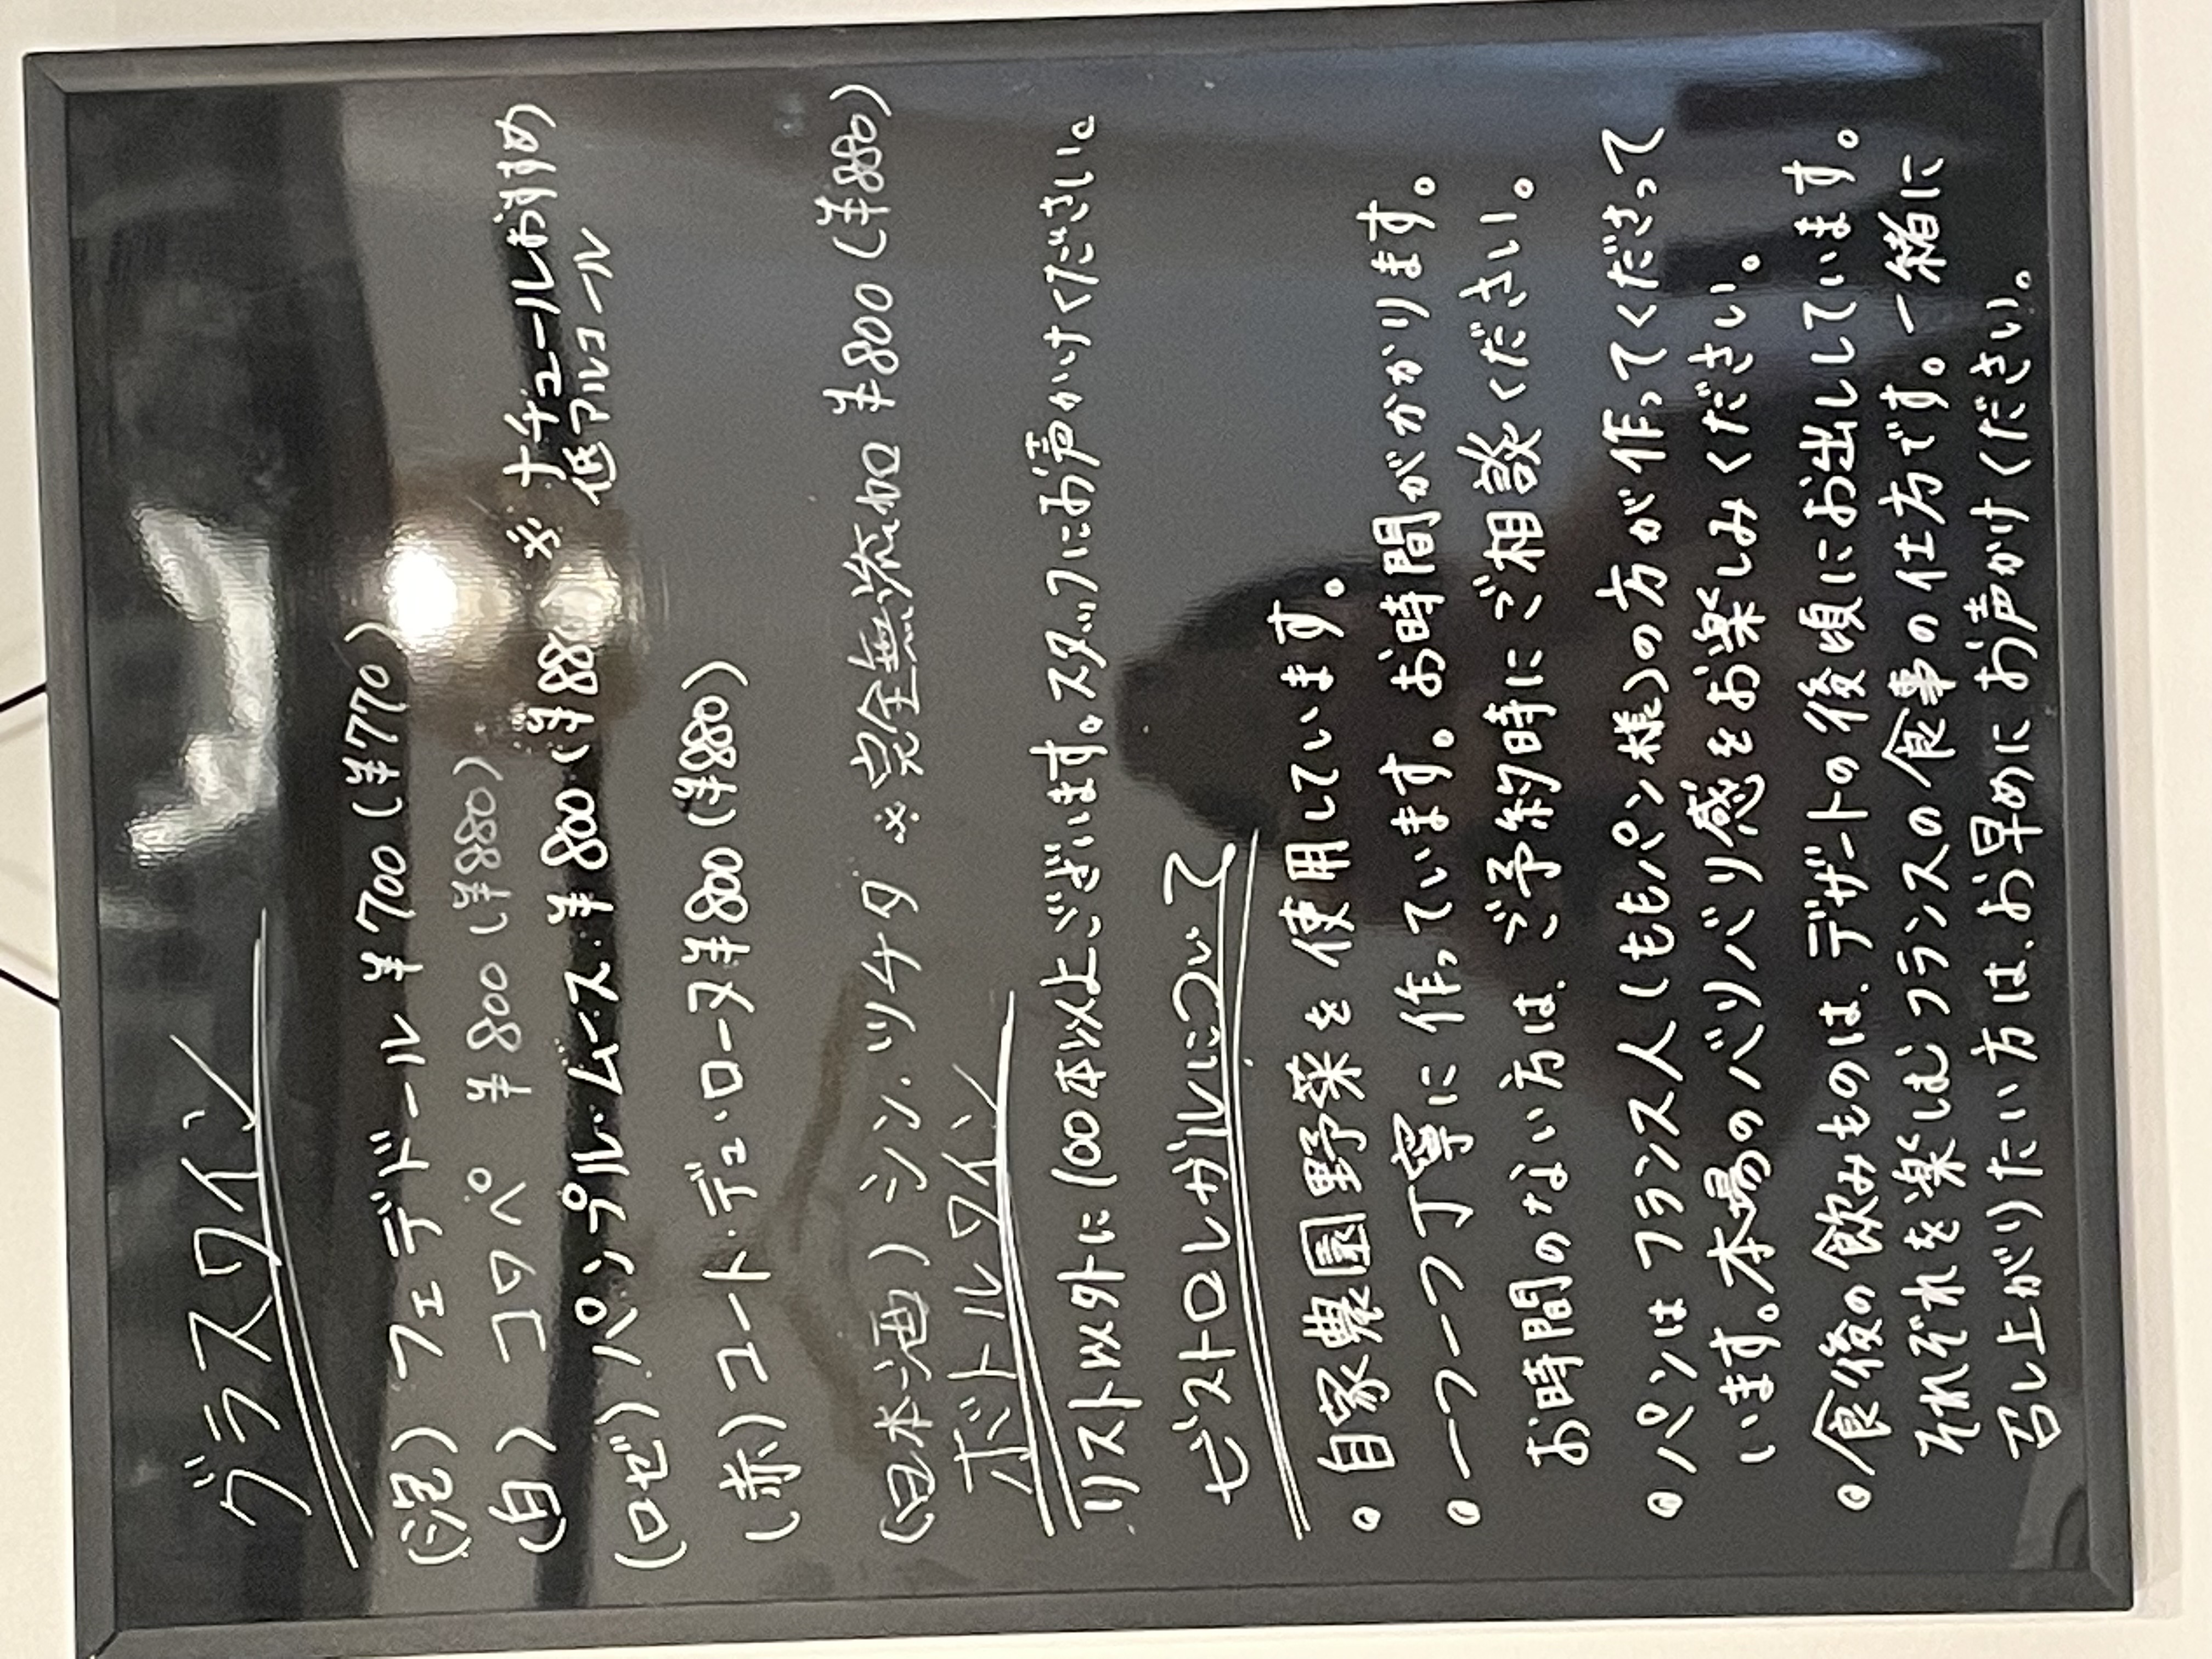 グラスワイン
(泡) フェデドール ¥700 (¥770)
(白) コワペ ¥800 (¥880)
(ロゼ) パンプル・ムース ¥800 (¥880) ※ナチュールおすすめ
低アルコール
(赤) コート・デュ・ローヌ ¥800 (¥880)
(日本酒) シン・ツチダ ※完全無添加 ¥800 (¥880)
ボトルワイン
リスト以外に100本以上ございます。スタッフにお声かけください。
ビストロレガルについて
・自家農園野菜を使用しています。
・一つ一つ丁寧に作っています。お時間がかかります。
お時間のない方は、ご予約時にご相談ください。
・パンはフランス人(ももパン様)の方が作ってくださって
います。本場のバリバリ感をお楽しみください。
・食後の飲みものは、デザートの後頃にお出ししています。
それぞれを楽しむフランスの食事の仕方です。一緒に
召し上がりたい方は、お早めにお声かけください。